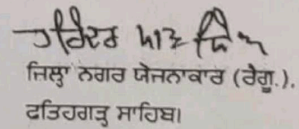 ਜਿਲ੍ਹਾ ਨਗਰ ਯੋਜਨਾਕਾਰ (ਰੈਗੂ.).
ਫਤਿਹਗੜ੍ਹ ਸਾਹਿਬ।